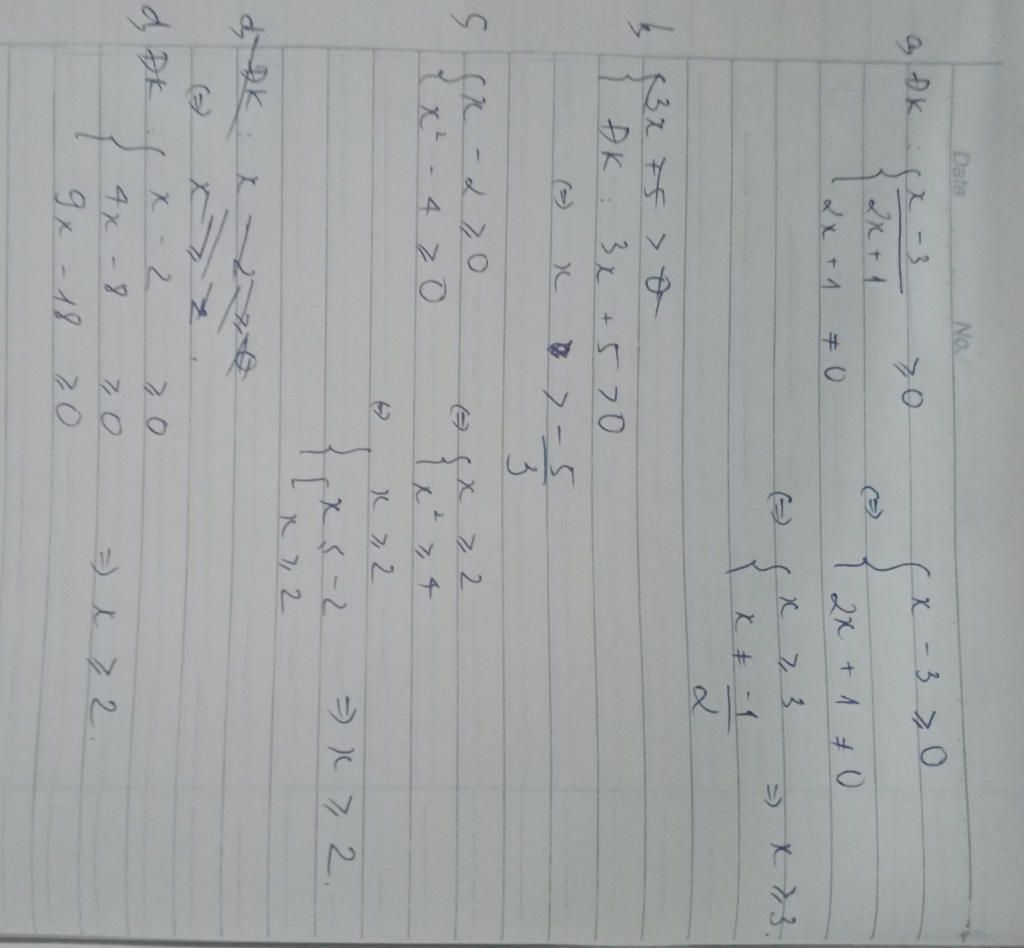 Date No.
a, ĐK : { x - 3 / 2x + 1 ≥ 0 ⇔ { x - 3 ≥ 0
2x + 1 ≠ 0 2x + 1 ≠ 0
⇔ { x ≥ 3 ⇒ x ≥ 3.
x ≠ -1 / 2
b, { 3x + 5 > 0
ĐK : 3x + 5 > 0
⇔ x > -5 / 3
c, { x - 2 ≥ 0 ⇔ { x ≥ 2
x² - 4 ≥ 0 x² ≥ 4
⇔ { x ≥ 2
[ x ≤ -2 ⇒ x ≥ 2.
x ≥ 2
d, ĐK : x - 2 ≥ 0
⇔ x ≥ 2.
d, ĐK : { x - 2 ≥ 0
4x - 8 ≥ 0 ⇒ x ≥ 2.
9x - 18 ≥ 0